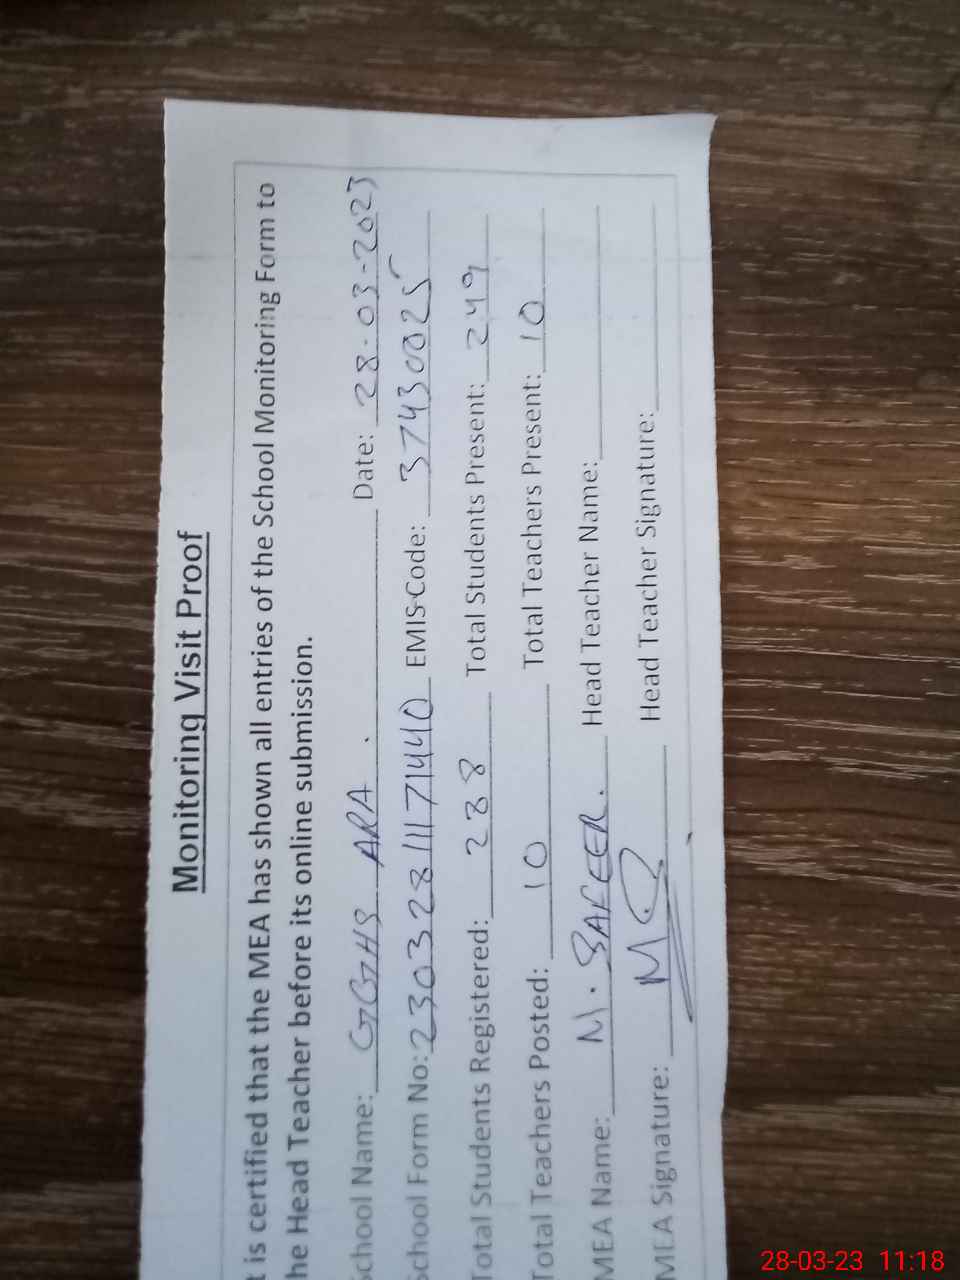 Monitoring Visit Proof
t is certified that the MEA has shown all entries of the School Monitoring Form to
he Head Teacher before its online submission.
School Name: GGHS ARA . Date: 28-03-2023
School Form No: 23032811171440 EMIS-Code: 37430025
Total Students Registered: 288 Total Students Present: 249
Total Teachers Posted: 10 Total Teachers Present: 10
MEA Name: M. SAFEER. Head Teacher Name:
MEA Signature: Head Teacher Signature:
28-03-23 11:18